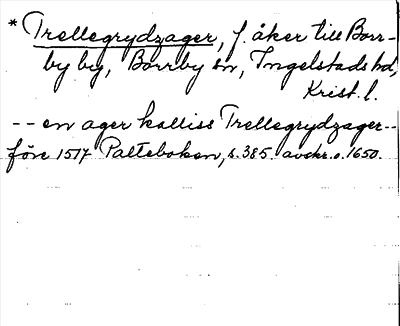 * Trellegrydzager, f. åker till Borr-
by by, Borrby sn, Ingelstads hd,
Krist. l.
-- en ager kalliss Trellegrydzager --
före 1517 Palteboken, s. 385. avskr. o. 1650.